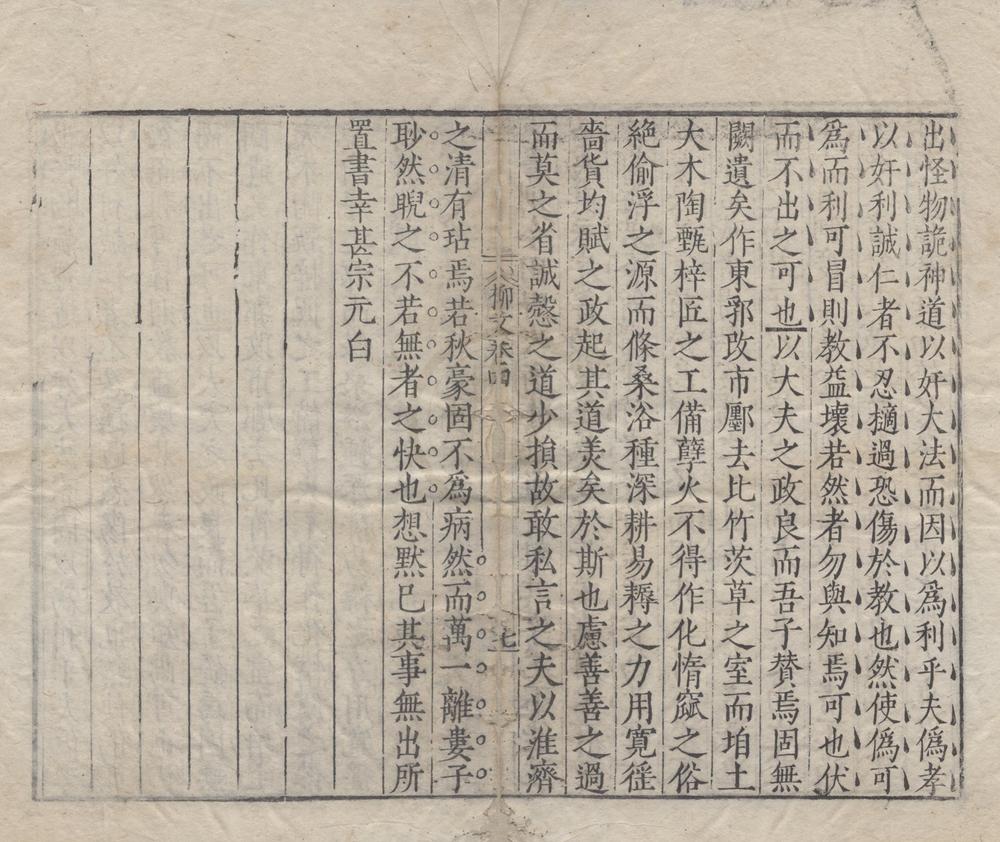 出怪物詭神道以奸大法而因以爲利乎夫僞孝
以奸利誠仁者不忍擿過恐傷於教也然使僞可
爲而利可冒則教益壞若然者勿與知焉可也伏
而不出之可也以大夫之政良而吾子賛焉固無
闕遺矣作東郛攺市鄽去比竹茨草之室而垍土
大木陶甄梓匠之工備孽火不得作化惰窳之俗
絶偷浮之源而條桑浴種深耕易耨之力用寛徭
嗇貨均賦之政起其道羙矣於斯也慮善善之過
而莫之省誠慤之道少損故敢私言之夫以淮濟
柳文卷四
七
之清有玷焉若秋豪固不爲病然而萬一離婁子
眇然睨之不若無者之快也想默已其事無出所
置書幸甚宗元白